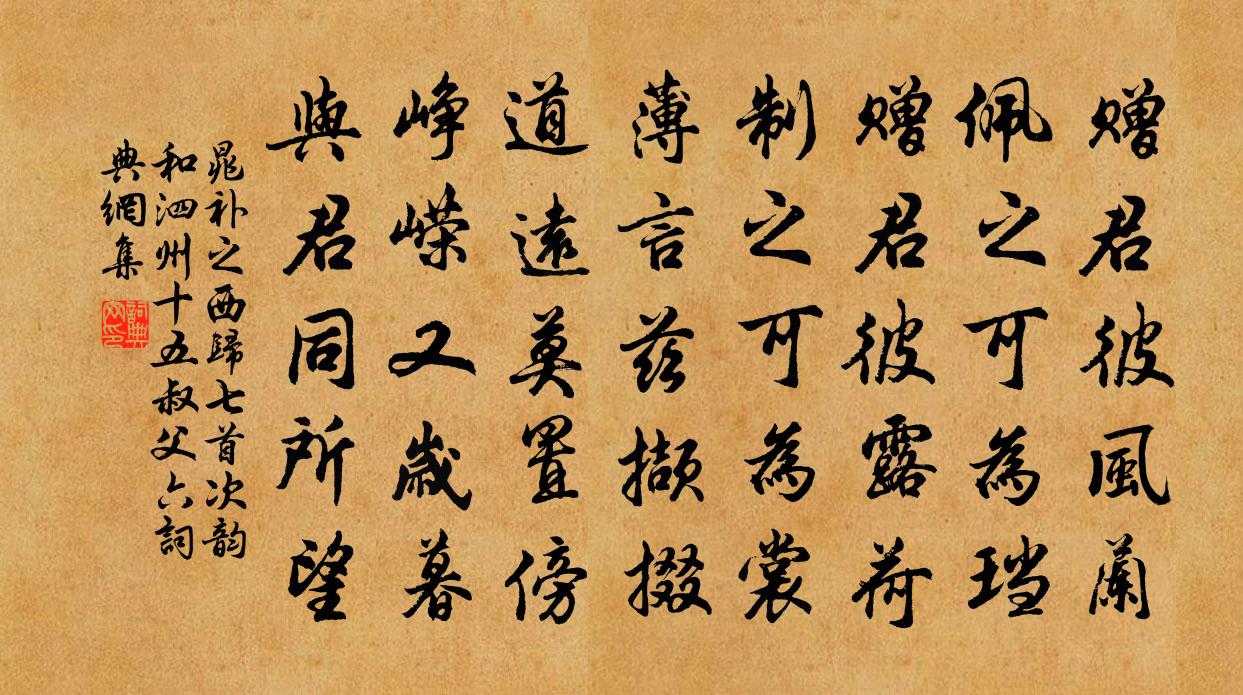 赠君彼風蘭
佩之可為珰
赠君彼露荷
制之可為裳
薄言茲擷掇
道遠莫置傍
峥嵘又歲暮
與君同所望
晁补之西歸七首次韵
和泗州十五叔父六詞
典網集
詞典網印